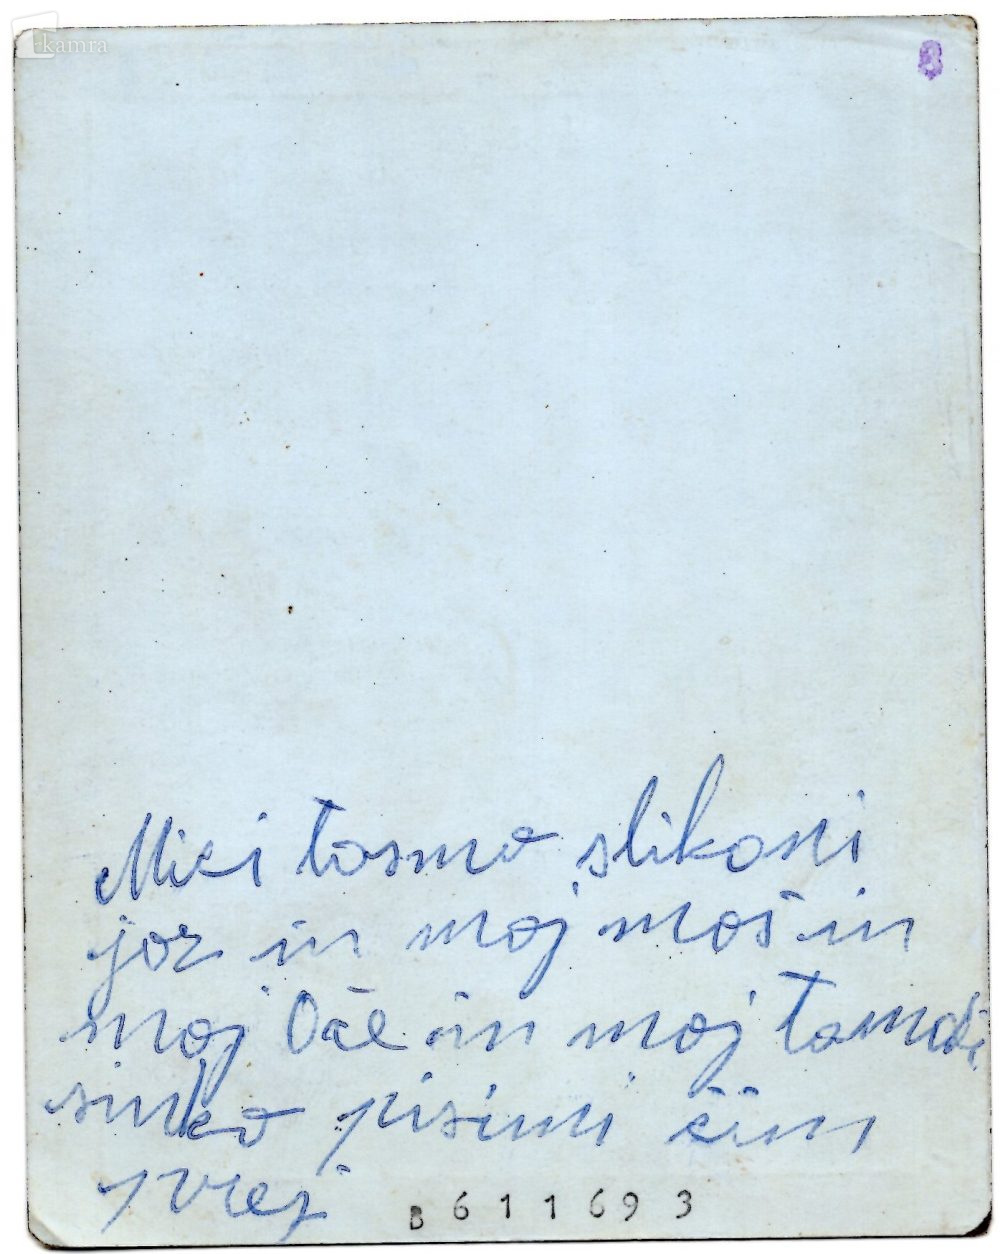 kamra
8
Mici tosmo slikani
joz in moj mož in
moj Oče in moj tamali
sinko pisimi čim
prej
B 611693